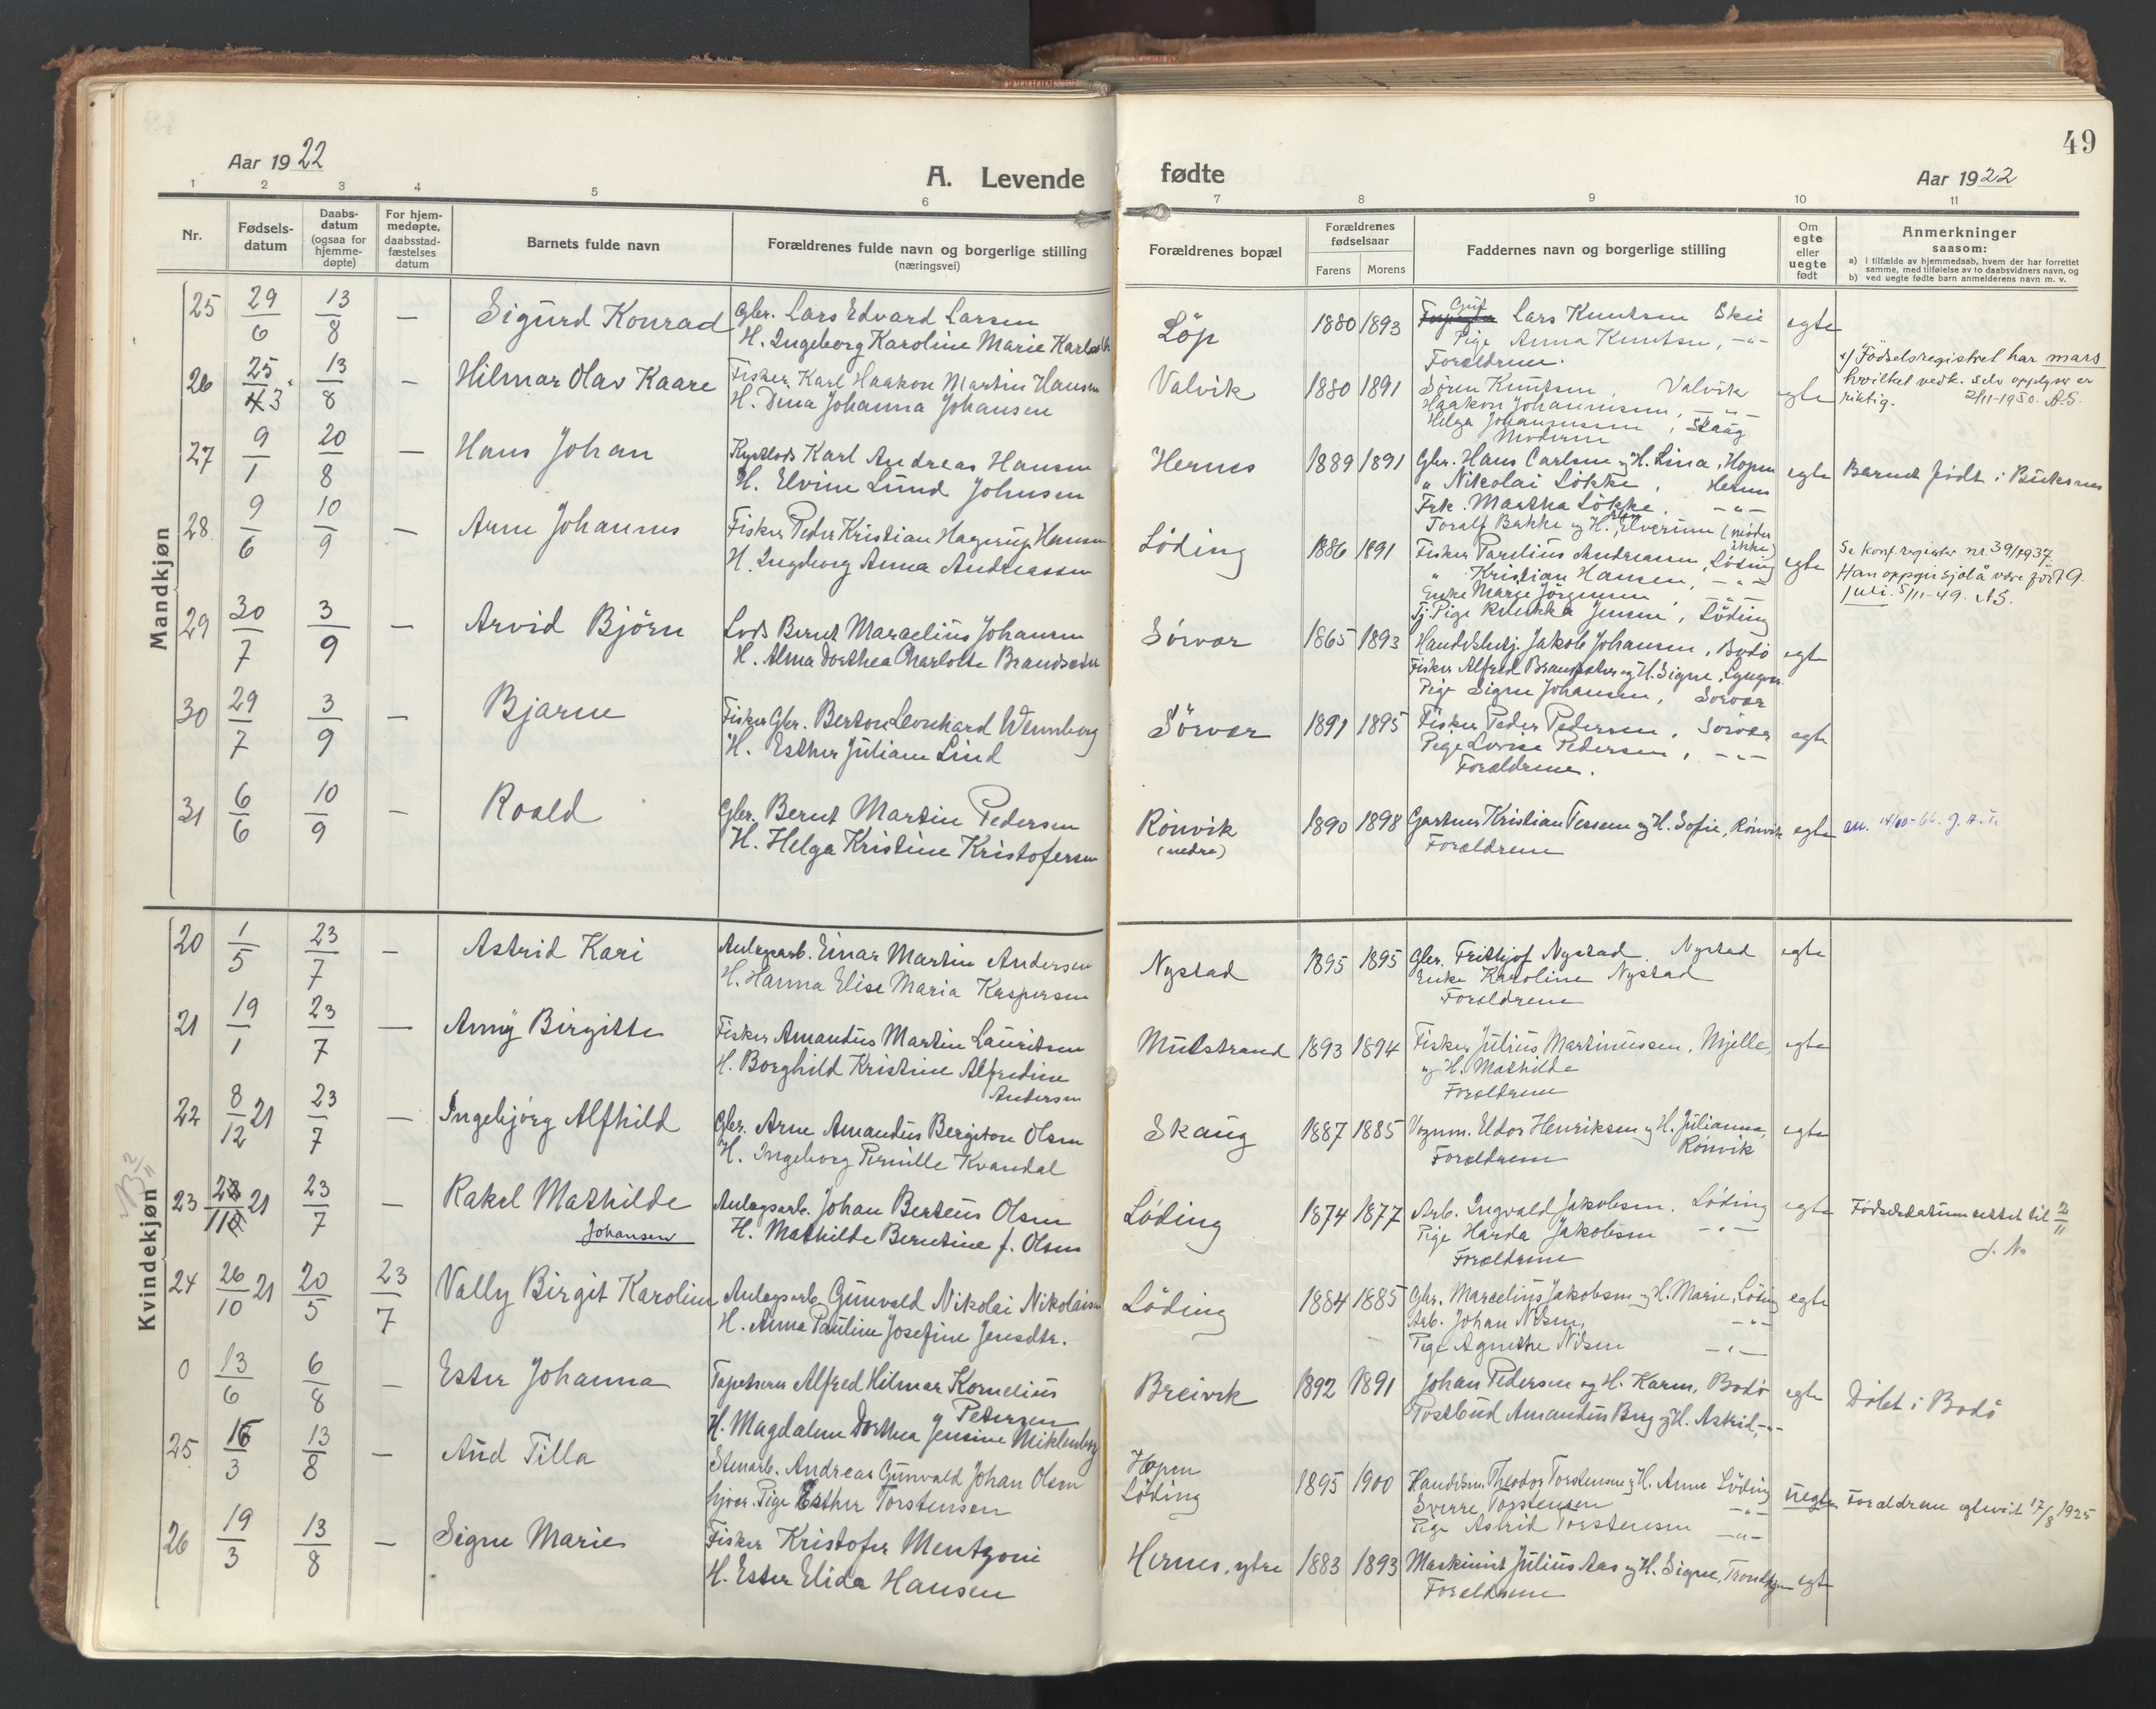 49
Aar 1922
A. Levende fødte
Aar 1922
1 2 3 4 5 6 7 8 9 10 11
Nr.
Fødsels-
datum
Daabs-
datum
(ogsaa for
hjemme-
døpte)
For hjem-
medøpte,
daabsstad-
fæstelses
datum
Barnets fulde navn
Forældrenes fulde navn og borgerlige stilling
(næringsvei)
Forældrenes bopæl
Forældrenes
fødselsaar
Farens Morens
Faddernes navn og borgerlige stilling
Om
egte
eller
uegte
født
Anmerkninger
saasom:
a) i tilfælde av hjemmedaab, hvem der har forrettet
samme, med tilføielse av to daabsvidners navn, og
b) ved uegte fødte barn anmelderens navn m. v.
Mandkjøn
25 29/6 13/8 — Sigurd Konrad
Gbr. Lars Edvard Larsen
H. Ingeborg Karoline Marie
Löp 1880 1893
Gut Lars Knutsen Skei
Pige Anna Knutsen, -"-
Forældrene.
egte
26 25/4 3 13/8 — Hilmar Olav Kaare
Fisker Karl Haakon Martin Hansen
H. Dina Johanna Johansen
Valvik 1880 1891
Sören Knutsen, Valvik
Haakon Johannessen, -"-
Helga Johannessen, Skaug
Moderen
egte
Födselsregistret har mars
hvilket vedk. selv opplyser er
riktig. 2/11-1950. A.S.
27 9/1 20/8 — Hans Johan
Kystlods Karl Andreas Hansen
H. Elvine Lund Johnsen
Hernes 1889 1891
Gbr. Hans Carlsen og H. Lina, Hopen
" Nikolai Løkke, Hernes
Frk. Martha Løkke, -"-
Toralf Bakke og H. Elverum (møder
ikke)
egte
Barnet födt i Buksnes
28 9/6 10/9 — Arne Johannes
Fisker Peder Kristian Hagerup Hansen
H. Ingeborg Anna Andreassen
Löding 1886 1891
Fisker Parelius Andreassen, Löding
" Kristian Hansen, -"-
Enke Marie Jörgensen, -"-
Tj. Pige Rebekka Jensen, Löding
egte
Se konf. register nr 39/1937
Han oppgir sjöl å være född 9.
juli. 5/11-49. A.S.
29 30/7 3/9 — Arvid Björn
Lods Bernt Marcelius Johansen
H. Alma Dorthea Charlotte
Sörvær 1865 1893
Handelsbetj. Jakob Johansen, Bodö
Fisker Alfred og H. Signe,
Pige Signe Johansen, Sörvær
egte
30 29/7 3/9 — Bjarne
Fisker Gbr. Berton Leonhard Wennberg
H. Esther Juliane Lind
Sörvær 1891 1895
Fisker Peder Pedersen, Sörvær
Pige Lovise Pedersen, -"-
Forældrene.
egte
31 6/6 10/9 — Roald
Gbr. Bernt Martin Pedersen
H. Helga Kristine Kristofersen
Rönvik
(nedre)
1890 1898
Gartner Kristian Tessem og H. Sofie, Rönvik
Forældrene
egte
Kvindekjøn
20 1/5 23/7 — Astrid Kari
Anlægsarb. Einar Martin Andersen
H. Hanna Elise Maria Kaspersen
Nystad 1895 1895
Gbr. Frithjof Nystad. Nystad
Enke Karoline Nystad
Forældrene
egte
21 19/1 23/7 — Anny Birgitte
Fisker Amandus Martin Lauritsen
H. Borghild Kristine Alfredine
Andersen
Mulstrand 1893 1894
Fisker Julius Martinussen, Mjelle,
og H. Mathilde
Forældrene
egte
22 8/12 21 23/7 — Ingebjörg Alfhild
Gbr. Arne Amandus Bergiton Olsen
H. Ingeborg Pernille Kvandal
Skaug 1887 1885
Vognm. Eldor Henriksen og H. Julianna,
Rönvik
Forældrene
egte
23 21 23/7 — Rakel Mathilde
Johansen
Anlægsarb. Johan Berteus Olsen
H. Mathilde Berntine f. Olsen
Löding 1874 1877
Arb. Ingvald Jakobsen. Löding
Pige Harda Jakobsen -"-
Forældrene
egte
Fødselsdatum rettet til 2/11
24 26/10 21 20/5 23/7 Vally Birgit Karoline
Anlægsarb. Gunvald Nikolai Nikolaisen
H. Anna Pauline Josefine Jensdtr.
Löding 1884 1885
Gbr. Marcelius Jakobsen og H. Marie, Löding
Arb. Johan Nilsen, -"-
Pige Agnethe Nilsen -"-
egte
0 13/6 6/8 — Ester Johanna
Tapetserer Alfred Hilmar Kornelius
Petersen
H. Magdalene Dorthea Jensine Miklenborg
Breivik 1892 1891
Johan Pedersen og H. Karen, Bodö
Postbud Amandus Berg og H. Astrid, -"-
egte
Döbt i Bodö
25 16/3 13/8 — Aud Tilla
Stenarb. Andreas Gunvald Johan Olsen
hjvær. Pige Esther Torstensen
Hopen
Löding
1895 1900
Handelsm. Theodor Torstensen og H. Anna Löding
Sverre Torstensen -"-
Pige Astrid Torstensen -"-
uegte
Forældrene egteviet 17/8 1925
26 19/3 13/8 — Signe Marie
Fisker Kristofer Mentzoni
H. Ester Elida Hansen
Hernes, ytre 1883 1893
Maskinist Julius Aas og H. Signe, Trondhjem
Forældrene
egte